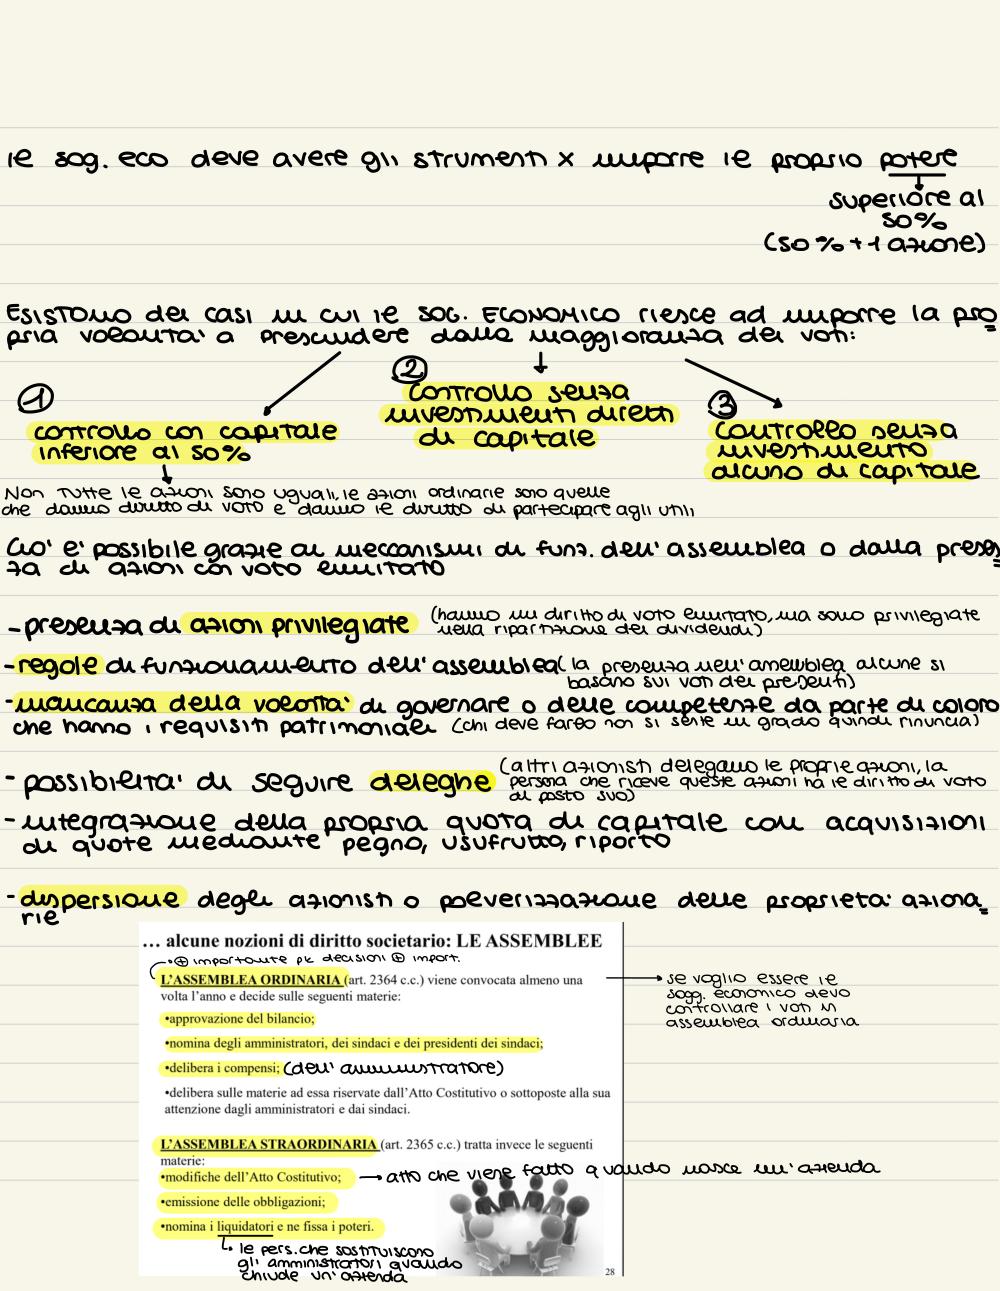 il sog. eco deve avere gli strumenti x imporre il proprio potere
superiore al
50%
(50%+1 azione)
Esistono dei casi in cui il sog. ECONOMICO riesce ad imporre la pro=
pria volonta' a prescindere dalla maggioranza dei voti:
1
controllo con capitale
inferiore al 50%
2
Controllo senza
investimenti diretti
di capitale
3
Controllo senza
investimento
alcuno di capitale
Non tutte le azioni sono uguali, le azioni ordinarie sono quelle
che danno diritto di voto e danno il diritto di partecipare agli utili
Cio' e' possibile grazie ai meccanismi di funz. dell'assemblea o dalla presen=
za di azioni con voto limitato
- presenza di azioni privilegiate (hanno un diritto di voto limitato, ma sono privilegiate
nella ripartizione dei dividendi)
- regole di funzionamento dell'assemblea (la presenza nell'assemblea alcune si
basano sui voti dei presenti)
- mancanza della volonta' di governare o delle competenze da parte di coloro
che hanno i requisiti patrimoniali (chi deve farlo non si sente in grado quindi rinuncia)
- possibilita' di seguire deleghe (altri azionisti delegano le proprie azioni, la
persona che riceve queste azioni ha il diritto di voto
al posto suo)
- integrazione della propria quota di capitale con acquisizioni
di quote mediante pegno, usufrutto, riporto
- dispersione degli azionisti o polverizzazione delle proprieta' aziona=
rie
... alcune nozioni di diritto societario: LE ASSEMBLEE
⊕ importante pk decisioni ⊕ import.
L'ASSEMBLEA ORDINARIA (art. 2364 c.c.) viene convocata almeno una
volta l'anno e decide sulle seguenti materie:
se voglio essere il
sogg. economico devo
controllare i voti in
assemblea ordinaria
•approvazione del bilancio;
•nomina degli amministratori, dei sindaci e dei presidenti dei sindaci;
•delibera i compensi; (dell'amministratore)
•delibera sulle materie ad essa riservate dall'Atto Costitutivo o sottoposte alla sua
attenzione dagli amministratori e dai sindaci.
L'ASSEMBLEA STRAORDINARIA (art. 2365 c.c.) tratta invece le seguenti
materie:
•modifiche dell'Atto Costitutivo; → atto che viene fatto quando nasce un'azienda
•emissione delle obbligazioni;
•nomina i liquidatori e ne fissa i poteri.
le pers. che sostituiscono
gli amministratori quando
chiude un'azienda
28